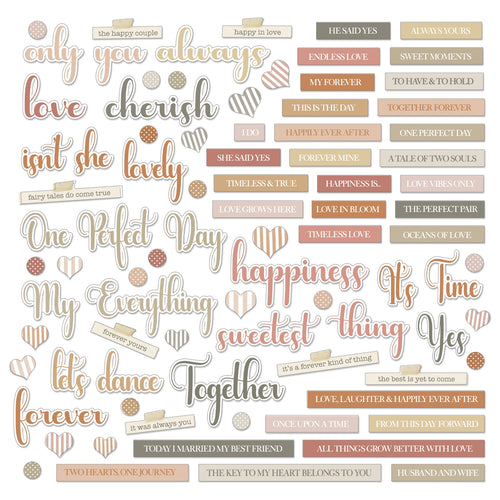 the happy couple
happy in love
HE SAID YES
ALWAYS YOURS
only you always
ENDLESS LOVE
SWEET MOMENTS
MY FOREVER
TO HAVE & TO HOLD
love cherish
THIS IS THE DAY
TOGETHER FOREVER
I DO
HAPPILY EVER AFTER
ONE PERFECT DAY
isn't she lovely
SHE SAID YES
FOREVER MINE
A TALE OF TWO SOULS
TIMELESS & TRUE
HAPPINESS IS..
LOVE VIBES ONLY
fairy tales do come true
LOVE GROWS HERE
LOVE IN BLOOM
THE PERFECT PAIR
One Perfect Day
TIMELESS LOVE
OCEANS OF LOVE
happiness
It's Time
My Everything
sweetest thing
Yes
forever yours
it's a forever kind of thing
let's dance
Together
the best is yet to come
forever
LOVE, LAUGHTER & HAPPILY EVER AFTER
it was always you
ONCE UPON A TIME
FROM THIS DAY FORWARD
TODAY I MARRIED MY BEST FRIEND
ALL THINGS GROW BETTER WITH LOVE
TWO HEARTS, ONE JOURNEY
THE KEY TO MY HEART BELONGS TO YOU
HUSBAND AND WIFE